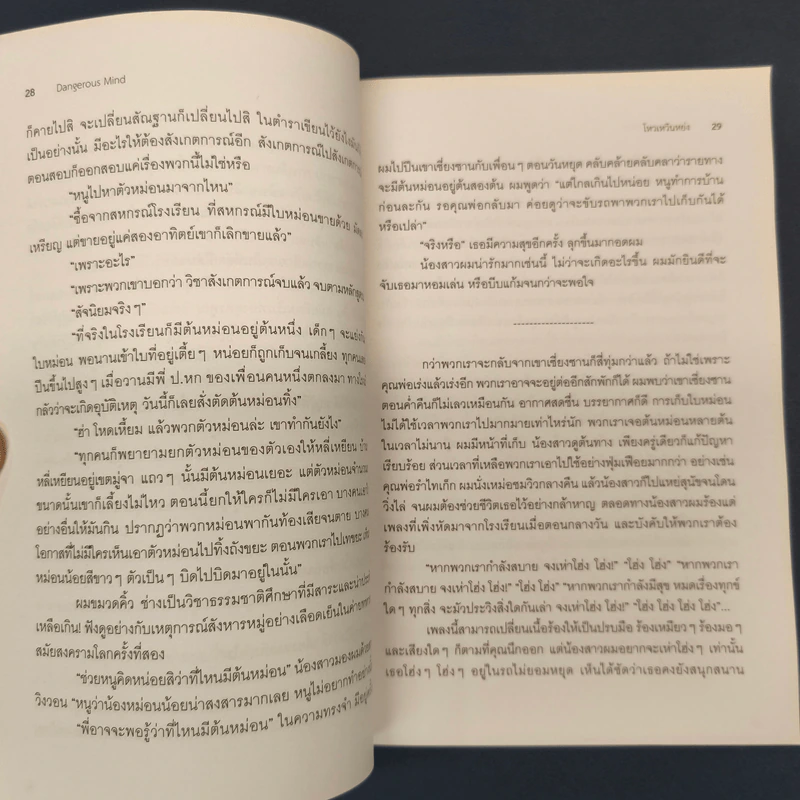 28 Dangerous Mind
ก็คายไปสิ จะเปลี่ยนสัณฐานก็เปลี่ยนไปสิ ในตำราเขียนไว้ยังไงมันก็
เป็นอย่างนั้น มีอะไรให้ต้องสังเกตการณ์อีก สังเกตการณ์ไปสังเกตการณ์
ตอนสอบก็ออกสอบแค่เรื่องพวกนี้ไม่ใช่หรือ
"หนูไปหาตัวหม่อนมาจากไหน"
"ซื้อจากสหกรณ์โรงเรียน ที่สหกรณ์มีใบหม่อนขายด้วย
เหรียญ แต่ขายอยู่แค่สองอาทิตย์เขาก็เลิกขายแล้ว"
"เพราะอะไร"
"เพราะพวกเขาบอกว่า วิชาสังเกตการณ์จบแล้ว จบตามหลักสูตร
"สัจนิยมจริงๆ"
"ที่จริงในโรงเรียนก็มีต้นหม่อนอยู่ต้นหนึ่ง เด็กๆ จะแย่งกัน
ใบหม่อน พอนานเข้าใบที่อยู่เตี้ยๆ หน่อยก็ถูกเก็บจนเกลี้ยง ทุกคน
ปีนขึ้นไปสูงๆ เมื่อวานมีพี่ ป.หก ของเพื่อนคนหนึ่งตกลงมา
กลัวว่าจะเกิดอุบัติเหตุ วันนี้ก็เลยสั่งตัดต้นหม่อนทิ้ง"
"ฮ่า โหดเหี้ยม แล้วพวกตัวหม่อนล่ะ เขาทำกันยังไง"
"ทุกคนก็พยายามยกตัวหม่อนของตัวเองให้หลี่เหยียน
หลี่เหยียนอยู่เขตมู่จา แถวๆ นั้นมีต้นหม่อนเยอะ แต่ตัวหม่อนจำนวน
ขนาดนั้นเขาก็เลี้ยงไม่ไหว ตอนนี้ยกให้ใครก็ไม่มีใครเอา บางคน
อย่างอื่นให้มันกิน ปรากฏว่าพวกหม่อนพากันท้องเสียจนตาย
โอกาสที่ไม่มีใครเห็นเอาตัวหม่อนไปทิ้งถังขยะ ตอนพวกเราไปเทขยะ
หม่อนน้อยสีขาวๆ ตัวเป็นๆ บิดไปบิดมาอยู่ในนั้น"
ผมขมวดคิ้ว ช่างเป็นวิชาธรรมชาติศึกษาที่มีสาระและน่า
เหลือเกิน! ฟังดูอย่างกับเหตุการณ์สังหารหมู่อย่างเลือดเย็นในค่าย
สมัยสงครามโลกครั้งที่สอง
"ช่วยหนูคิดหน่อยสิว่าที่ไหนมีต้นหม่อน" น้องสาวมองผมด้วย
วิงวอน "หนูว่าน้องหม่อนน้อยน่าสงสารมากเลย หนูไม่อยากทำอย่าง
"พี่อาจจะพอรู้ว่าที่ไหนมีต้นหม่อน" ในความทรงจำ
โหวเหวินหย่ง 29
ผมไปปีนเขาเซี่ยงซานกับเพื่อนๆ ตอนวันหยุด คลับคล้ายคลับคลาว่ารายทาง
จะมีต้นหม่อนอยู่ต้นสองต้น ผมพูดว่า "แต่ไกลเกินไปหน่อย หนูทำการบ้าน
ก่อนละกัน รอคุณพ่อกลับมา ค่อยดูว่าจะขับรถพาพวกเราไปเก็บกันได้
หรือเปล่า"
"จริงหรือ" เธอมีความสุขอีกครั้ง ลุกขึ้นมากอดผม
น้องสาวผมน่ารักมากเช่นนี้ ไม่ว่าจะเกิดอะไรขึ้น ผมมักยินดีที่จะ
จับเธอมาหอมเล่น หรือบีบแก้มจนกว่าจะพอใจ
---------------------
กว่าพวกเราจะกลับจากเขาเซี่ยงซานก็สี่ทุ่มกว่าแล้ว ถ้าไม่ใช่เพราะ
คุณพ่อเร่งแล้วเร่งอีก พวกเราอาจจะอยู่ต่ออีกสักพักก็ได้ ผมพบว่าเซี่ยงซาน
ตอนค่ำคืนก็ไม่เลวเหมือนกัน อากาศสดชื่น บรรยากาศก็ดี การเก็บใบหม่อน
ไม่ได้ใช้เวลาพวกเราไปมากมายเท่าไหร่นัก พวกเราเจอต้นหม่อนหลายต้น
ในเวลาไม่นาน ผมมีหน้าที่เก็บ น้องสาวดูต้นทาง เพียงครู่เดียวก็แก้ปัญหา
เรียบร้อย ส่วนเวลาที่เหลือพวกเราเอาไปใช้อย่างฟุ่มเฟือยมากกว่า อย่างเช่น
คุณพ่อรำไทเก็ก ผมนั่งเหม่อชมวิวกลางคืน แล้วน้องสาวก็ไปแหย่สุนัขจนโดน
วิ่งไล่ จนผมต้องช่วยชีวิตเธอไว้อย่างกล้าหาญ ตลอดทางน้องสาวผมร้องแต่
เพลงที่เพิ่งหัดมาจากโรงเรียนเมื่อตอนกลางวัน และบังคับให้พวกเราต้อง
ร้องรับ
"หากพวกเรากำลังสบาย จงเห่าโฮ่ง โฮ่ง!" "โฮ่ง โฮ่ง" "หากพวกเรา
กำลังสบาย จงเห่าโฮ่ง โฮ่ง!" "โฮ่ง โฮ่ง" "หากพวกเรากำลังมีสุข หมดเรื่องทุกข์
ใดๆ ทุกสิ่ง จะมัวประวิงสิ่งใดกันเล่า จงเห่าโฮ่ง โฮ่ง!" "โฮ่ง โฮ่ง โฮ่ง โฮ่ง"...
เพลงนี้สามารถเปลี่ยนเนื้อร้องให้เป็นปรบมือ ร้องเหมียวๆ ร้องมอๆ
และเสียงใดๆ ก็ตามที่คุณนึกออก แต่น้องสาวผมอยากจะเห่าโฮ่งๆ เท่านั้น
เธอโฮ่งๆ โฮ่งๆ อยู่ในรถไม่ยอมหยุด เห็นได้ชัดว่าเธอคงยังสนุกสนาน